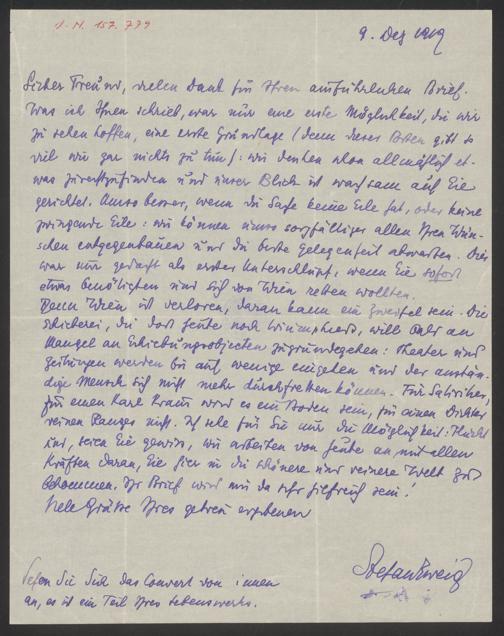 I.N. 157.739
9. Dez 1919
Lieber Freund, vielen Dank für Ihren ausführlichen Brief.
Was ich Ihnen schrieb, war nur eine erste Möglichkeit, die wir
zu sehen hoffen, eine erste Grundlage (denn dieses gibt so
viel wie gar nichts zu tun): wir denken schon allmählich et-
was zurechtzufinden und unser Blick ist wachsam auf Sie
gerichtet. Umso besser, wenn die Sache keine Eile hat, oder keine
zwingende Eile: wir können umso sorgfältiger allen Ihren Wün-
schen entgegenbauen und die beste Gelegenheit abwarten. Dies
war nur gedacht als erster Unterschlupf, wenn Sie sofort
etwas benötigten und sich von Wien retten wollten.
Denn Wien ist verloren, daran kann ein Zweifel sein. Die
Schieberei, die dort heute noch triumphiert, will bald an
Mangel an Schiebungsobjecten zugrundegehen: Theater und
Zeitungen werden bis auf wenige eingehen und der anstän-
dige Mensch sich nicht mehr durchfretten können. Für Satiriker,
für einen Karl Kraus wird es ein Boden sein, für einen Dichter
reinen Ranges nicht. Ich sehe für Sie nur die Möglichkeit: Flucht
und, seien Sie gewiss, wir arbeiten von heute an mit allen
Kräften daran, Sie hier in die schönere und reinere Welt zu
bekommen. Ihr Brief wird mir da sehr hilfreich sein!
Viele Grüsse Ihres getreu ergebenen
Stefan Zweig
Sehen Sie Sich das Couvert von innen
an, es ist ein Teil Ihres Lebenswerks.